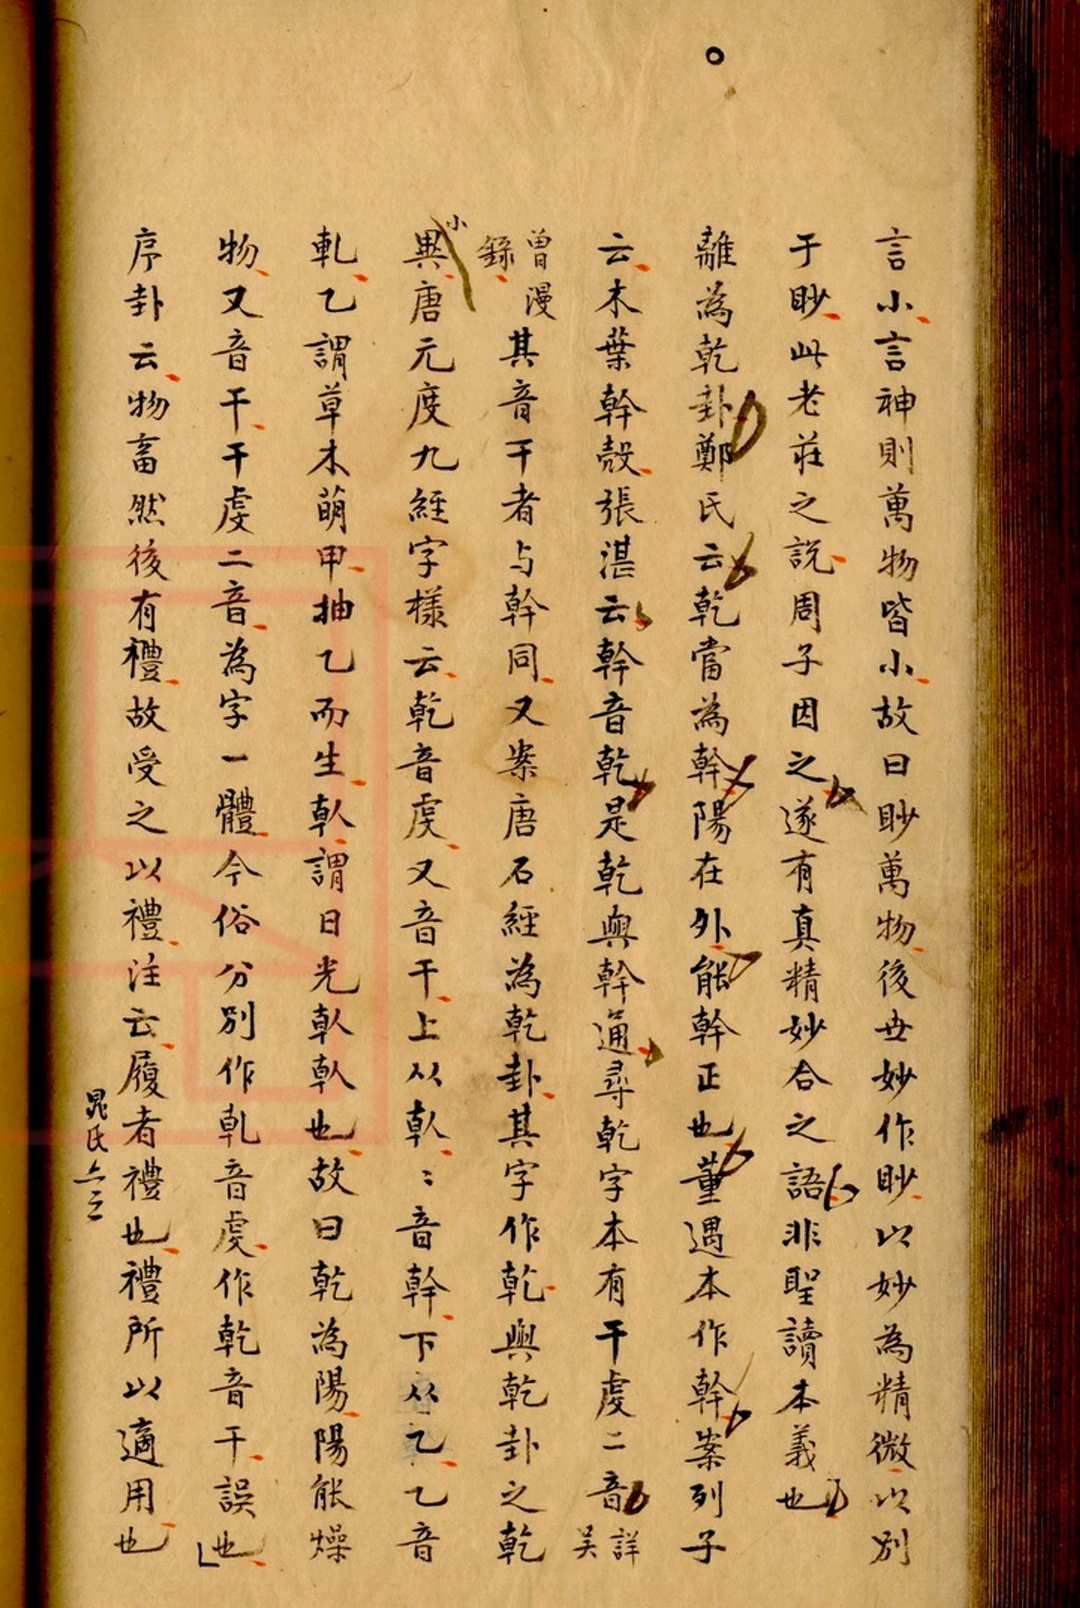 言小言神則萬物皆小故曰眇萬物後世妙作眇以妙為精微以別
于眇此老莊之說周子因之遂有真精妙合之語非聖讀本義也
離為乾卦鄭氏云乾當為幹陽在外能幹正也董遇本作幹案列子
云木葉幹殼張湛云幹音乾是乾與幹通尋乾字本有干虔二音詳吴
曾漫錄其音干者与幹同又案唐石經為乾卦其字作乾與乾卦之乾
小異唐元度九經字樣云乾音虔又音干上从倝〻音幹下从乙乙音
軋乙謂草木萌甲抽乙而生倝謂日光倝倝也故曰乾為陽陽能燥
物又音干干虔二音為字一體今俗分別作乹音虔作乾音干誤也
序卦云物畜然後有禮故受之以禮注云履者禮也禮所以適用也
晁氏